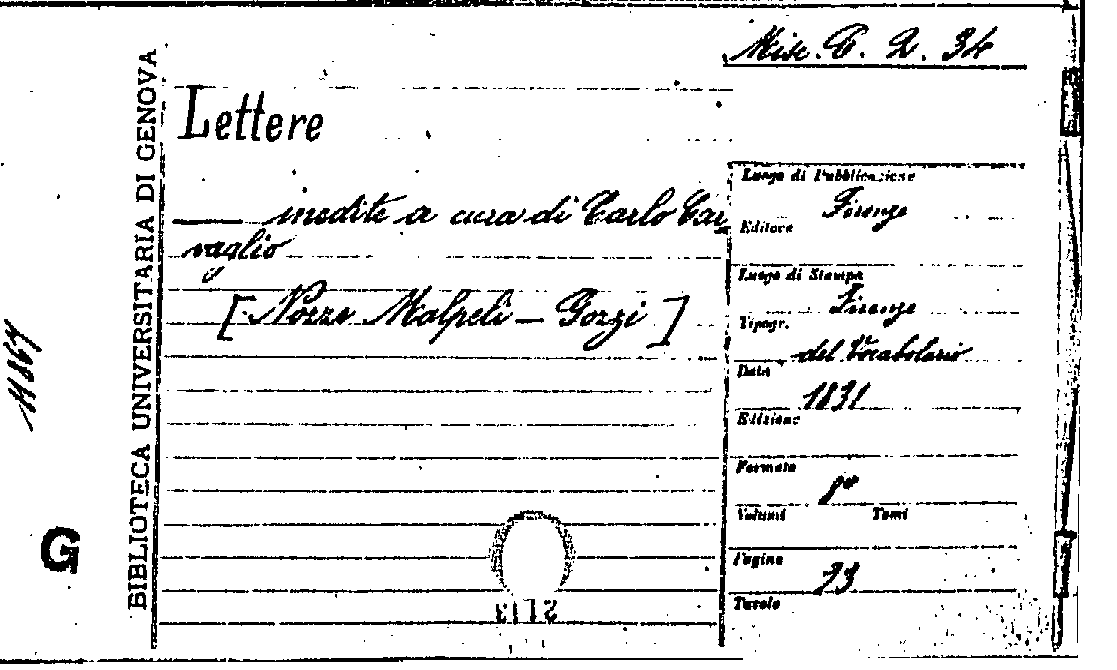 Misc. C. 2. 34
Lettere
inedite a cura di Carlo Car
vaglio
[Nozze Malpeli - Gozzi]
Luogo di Pubblicazione
Firenze
Editore
Luogo di Stampa
Firenze
Tipogr.
del Vocabolario
Data
1831
Edizione
Formato
8°
Volumi Tomi
Pagine
Tavole
BIBLIOTECA UNIVERSITARIA DI GENOVA
G